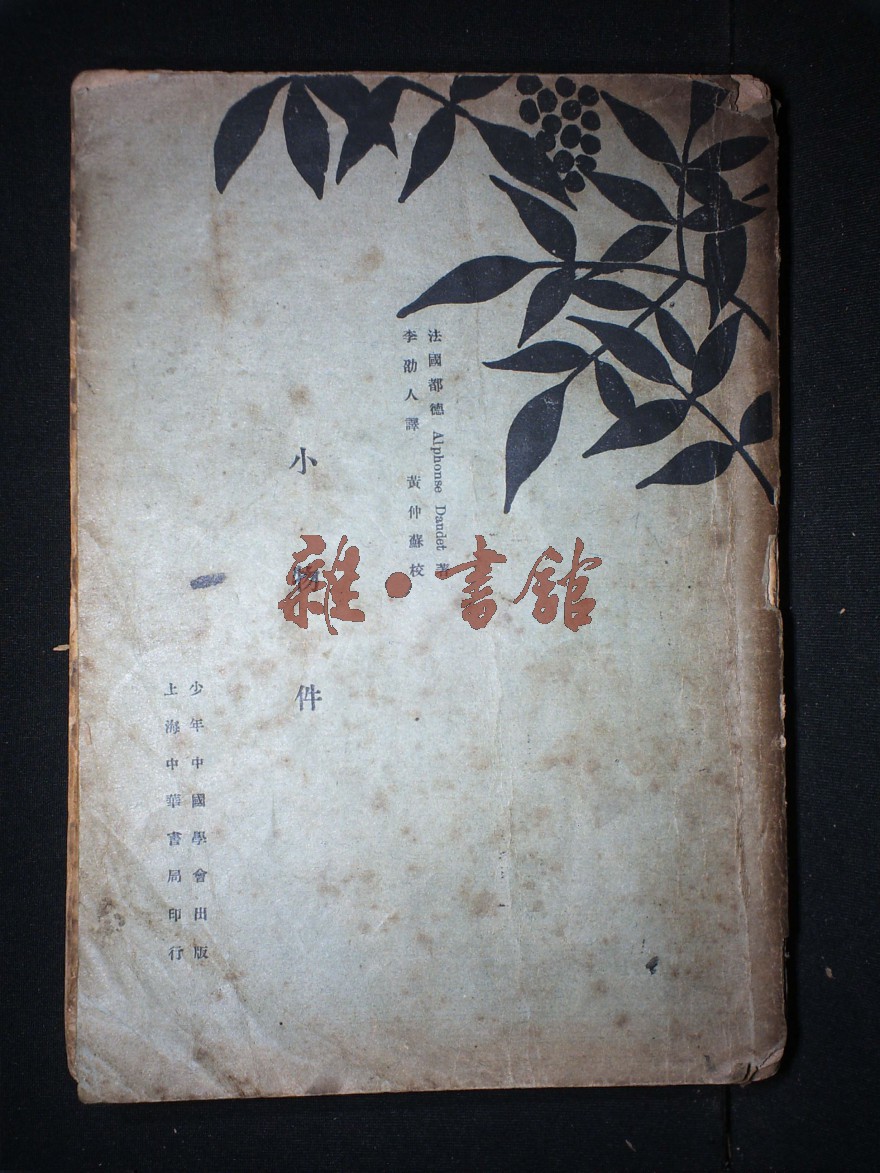 法國都德 Alphonse Dandet 著
李劼人譯 黃仲蘇校
小物件
少年中國學會出版
上海中華書局印行
雜·書館